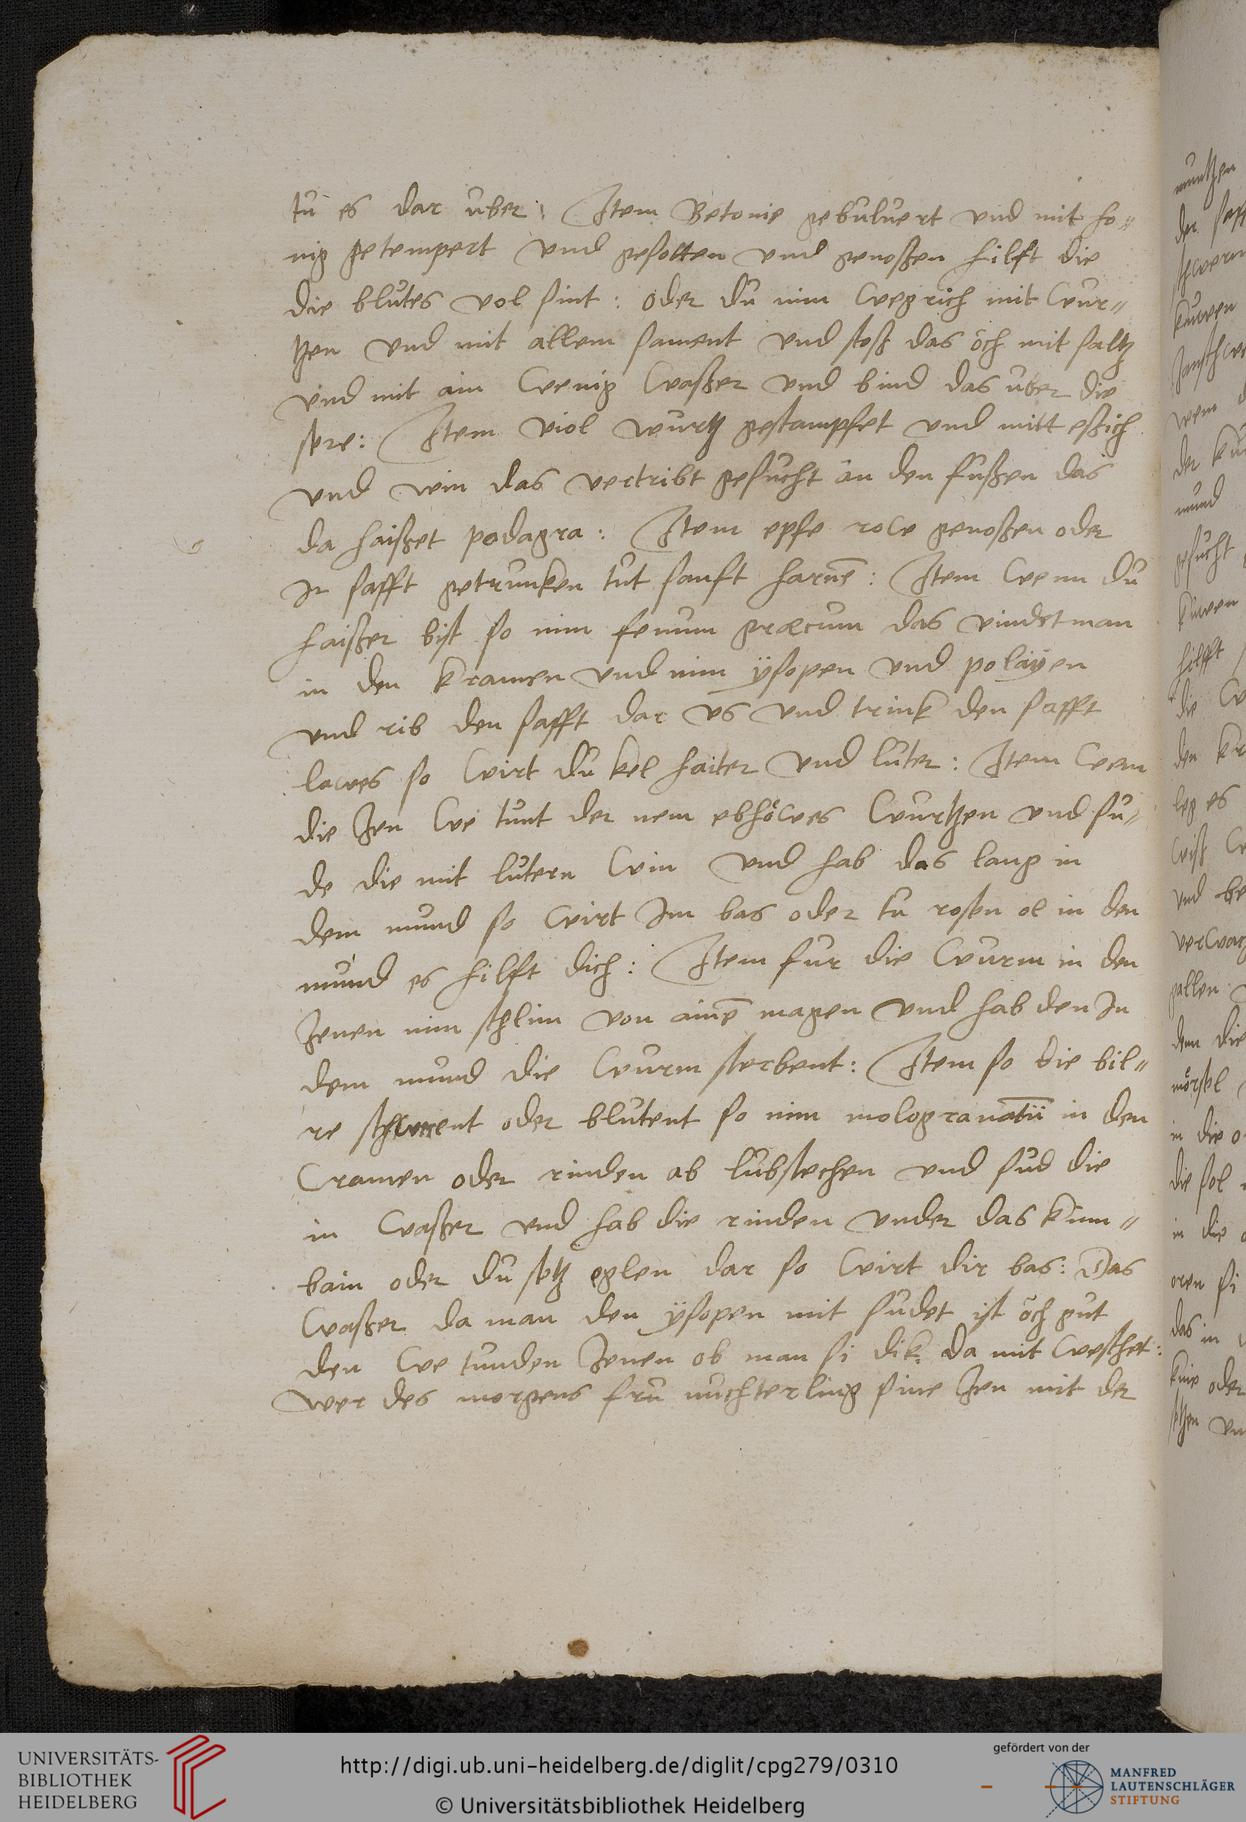 tu es dar uber : Item Betonie gebuluert vnd mit ho„
nig getempert vnd gesotten vnd genoßen hilft die
die blutes vol sint : oder du nim wegrich mit wur„
tzen vnd mit allem sament vnd stoß das och mit saltz
vnd mit ain wenig waßer vnd bind das uber die
sere : Item viol wurtz gestampfet vnd mitt eßich
vnd win das vertribt gesucht an den fußen das
da haißet podagra : Item epfe row genoßen oder
Ir safft getrunken tut sanft harnē : Item wenn du
haißer bist so nim fenum grecum das vindet man
in den kramen vnd nim ÿsopen vnd polaÿen
vnd rib den safft dar vs vnd trink den safft
lawes so wirt du kel haiter vnd luter : Item wem
die Zen we tunt der nem ebhöwes wurtzen vnd su„
de die mit lutern win vnd hab das lang in
dem mund so wirt Im bas oder tu rosen ol in den
mund es hilft dich : Item fur die wurm in den
Zenen nim schlim von ainē magen vnd hab den In
dem mund die wurm sterbent : Item so die bil„
re schwerent oder blutent so nim mologranatū in den
Cramen oder rinden ab lubstechen vnd sud die
in waßer vnd hab die rinden vnder das kinn„
bain oder du setz eglen dar so wirt dir bas : Das
waßer da man den ÿsopen mit sudet ist och gut
den we tunden Zenen ob man si dik da mit weschet :
wer des morgens fru nuchterling sine Zen mit der
muntzen
der saft
kuwen
wem d
mund
gesucht
kuwen
hilfft
die w
den kr
leg es
vnd be
gallen
dem die
morsel
in die o
die sol
in die o
oren si
das in
knie oder
UNIVERSITÄTS-
BIBLIOTHEK
HEIDELBERG
http://digi.ub.uni-heidelberg.de/diglit/cpg279/0310
© Universitätsbibliothek Heidelberg
gefördert von der
MANFRED
LAUTENSCHLÄGER
STIFTUNG